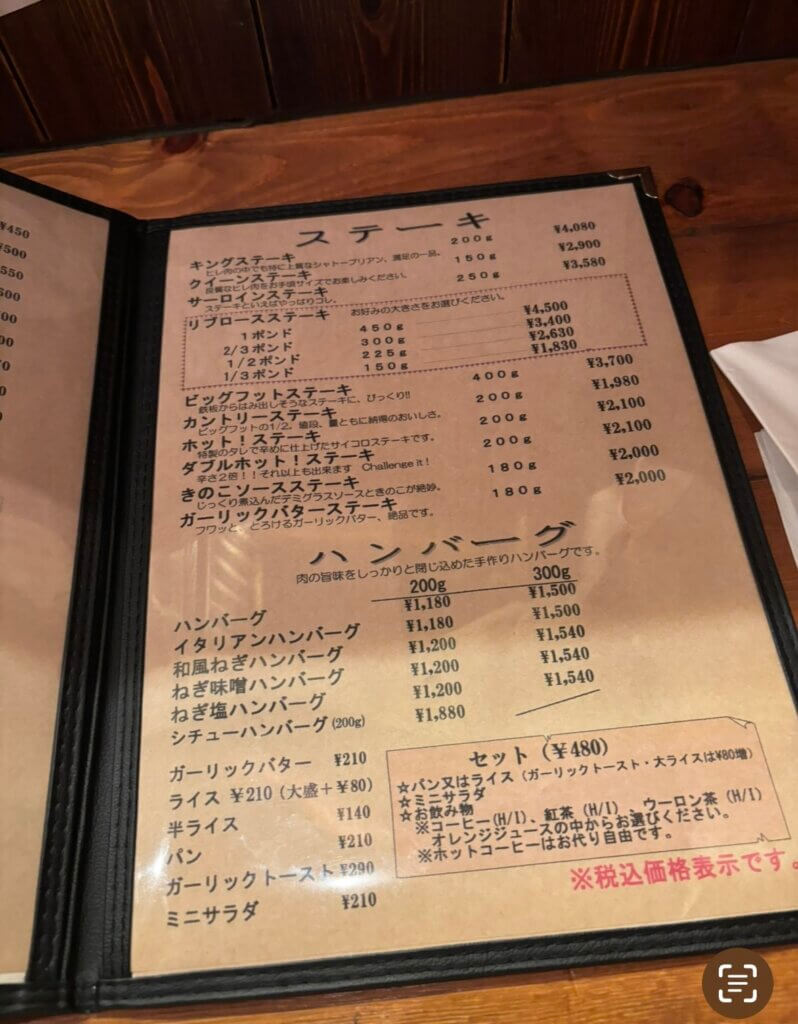 ¥450
¥500
ステーキ
キングステーキ 200g ¥4,080
ヒレ肉の中でも特に上質なシャトーブリアン、満足の一品。
クイーンステーキ 150g ¥2,900
良質なヒレ肉をお手頃サイズでお楽しみください。
サーロインステーキ 250g ¥3,580
ステーキといえばやっぱりコレ。
リブロースステーキ お好みの大きさをお選びください。
1ポンド 450g ¥4,500
2/3ポンド 300g ¥3,400
1/2ポンド 225g ¥2,630
1/3ポンド 150g ¥1,830
ビッグフットステーキ 400g ¥3,700
鉄板からはみ出しそうなステーキに、びっくり!!
カントリーステーキ 200g ¥1,980
ビッグフットの1/2。値段、量ともに納得のおいしさ。
ホット!ステーキ 200g ¥2,100
特製のタレで辛めに仕上げたサイコロステーキです。
ダブルホット!ステーキ 200g ¥2,100
辛さ2倍!!それ以上も出来ます Challenge it!
きのこソースステーキ 180g ¥2,000
じっくり煮込んだデミグラスソースときのこが絶妙。
ガーリックバターステーキ 180g ¥2,000
フワッと、とろけるガーリックバター、絶品です。
ハンバーグ
肉の旨味をしっかりと閉じ込めた手作りハンバーグです。
200g 300g
ハンバーグ ¥1,180 ¥1,500
イタリアンハンバーグ ¥1,180 ¥1,500
和風ねぎハンバーグ ¥1,200 ¥1,540
ねぎ味噌ハンバーグ ¥1,200 ¥1,540
ねぎ塩ハンバーグ ¥1,200 ¥1,540
シチューハンバーグ(200g) ¥1,880
ガーリックバター ¥210
ライス ¥210(大盛+¥80)
半ライス ¥140
パン ¥210
ガーリックトースト ¥290
ミニサラダ ¥210
セット(¥480)
☆パン又はライス(ガーリックトースト・大ライスは¥80増)
☆ミニサラダ
☆お飲み物
※コーヒー(H/I)、紅茶(H/I)、ウーロン茶(H/I)
オレンジジュースの中からお選びください。
※ホットコーヒーはお代り自由です。
※税込価格表示です。